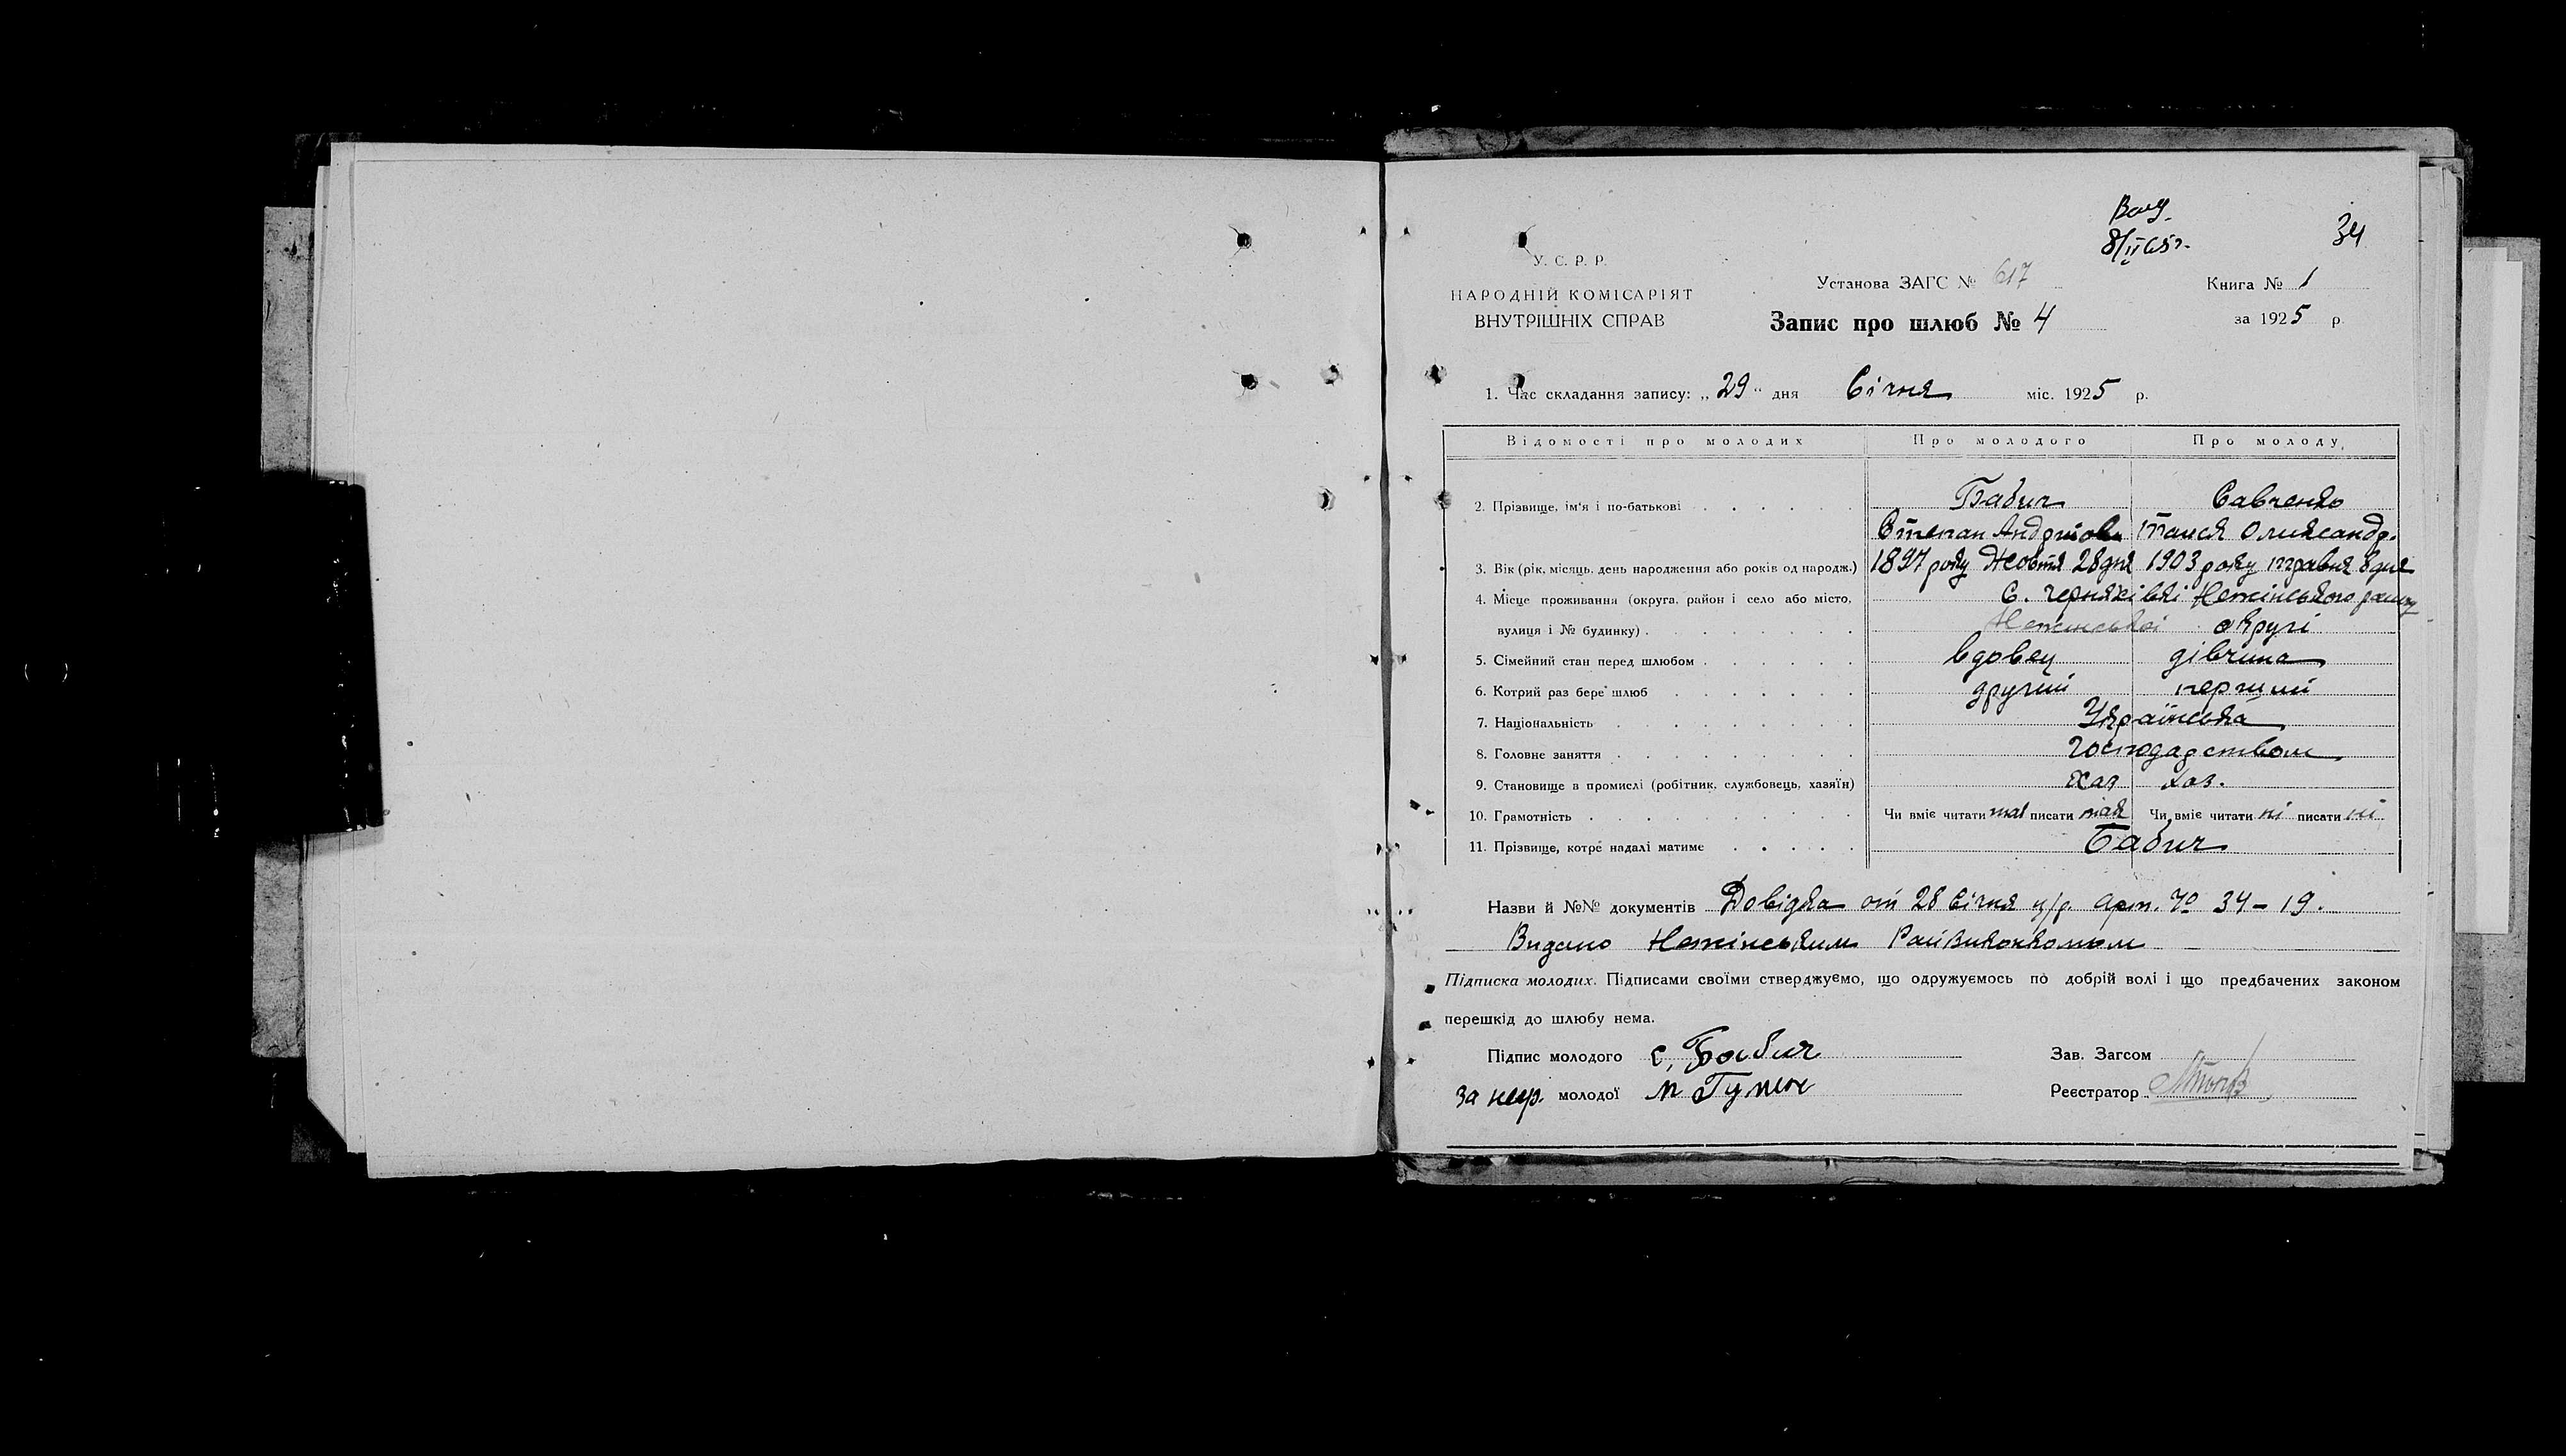 34
8/II 65 г.
У. С. Р. Р.
НАРОДНІЙ КОМІСАРІЯТ
ВНУТРІШНІХ СПРАВ
Установа ЗАГС № 617
Запис про шлюб № 4
Книга № 1
за 1925 р.
1. Час складання запису: „29“ дня Січня міс. 1925 р.
Відомості про молодих Про молодого Про молоду
2. Прізвище, ім'я і по-батькові Бабич Савченко
Степан Андрійов. Таися Олександр.
3. Вік (рік, місяць, день народження або років од народж.) 1897 року Жовтня 28 дня 1903 року травня 8 дня
4. Місце проживання (округа, район і село або місто, С. Черняківкі Неженського району
вулиця і № будинку) Неженської округі
5. Сімейний стан перед шлюбом вдовец дівчина
6. Котрий раз бере шлюб другий перший
7. Національність Українська
8. Головне заняття Господарством
9. Становище в промислі (робітник, службовець, хазяїн) Хаз Хаз.
10. Грамотність Чи вміє читати так писати так Чи вміє читати ні писати ні
11. Прізвище, котре надалі матиме Бабич
Назви й №№ документів Довідка от 28 Січня ц/р. № 34-19.
Видано Неженським Райвиконкомом
Підписка молодих. Підписами своїми стверджуємо, що одружуємось по добрій волі і що предбачених законом
перешкід до шлюбу нема.
Підпис молодого С, Бабич
За неур. молодої
Зав. Загсом
Реєстратор